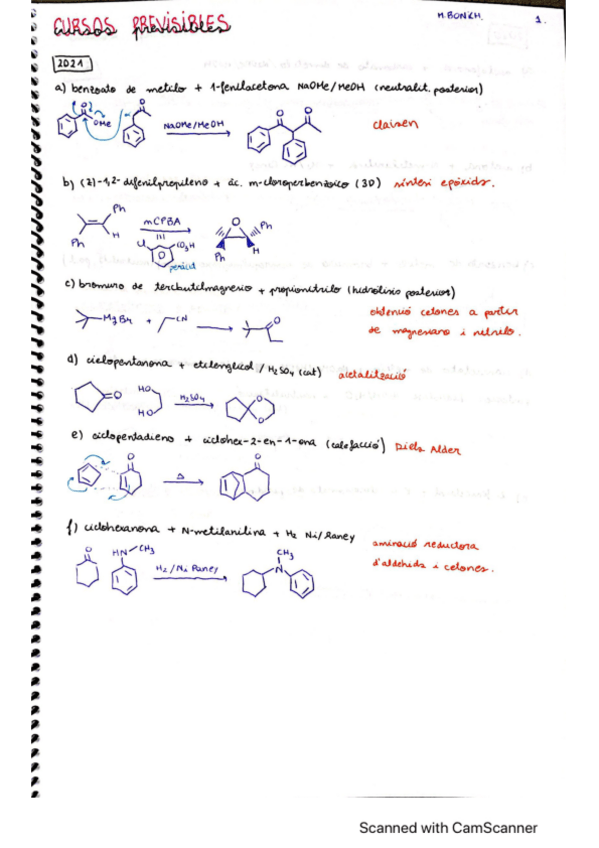 CURSOS PREVISIBLES
M.BONZH. 1.
2021
a) benzoato de metilo + 1-fenilacetona NaOMe/MeOH (neutralit. posteriors)
OMe
NaOMe/MeOH
claisen
b) (Z)-1,2-difenilpropileno + ác. m-cloroperbenzoico (3D) síntesi epòxids.
Ph
mCPBA
O
Ph
Ph
H
Cl
CO3H
Ph
H
peràcid
c) bromuro de tercbutilmagnesio + propionitrilo (hidrólisis posteriors)
obtenció cetones a partir
de magnessians i nitrilo.
MgBr + CN
O
d) ciclopentanona + etilenglicol / H2SO4 (cat) acetalització
O
HO
HO
H2SO4
O
O
e) ciclopentadieno + ciclohex-2-en-1-ona (calefacció) Diels Alder
O
Δ
O
f) ciclohexanona + N-metilanilina + H2 Ni/Raney
aminació reductora
d'aldehids i cetones.
O
HN CH3
H2/Ni Raney
CH3
N
Scanned with CamScanner